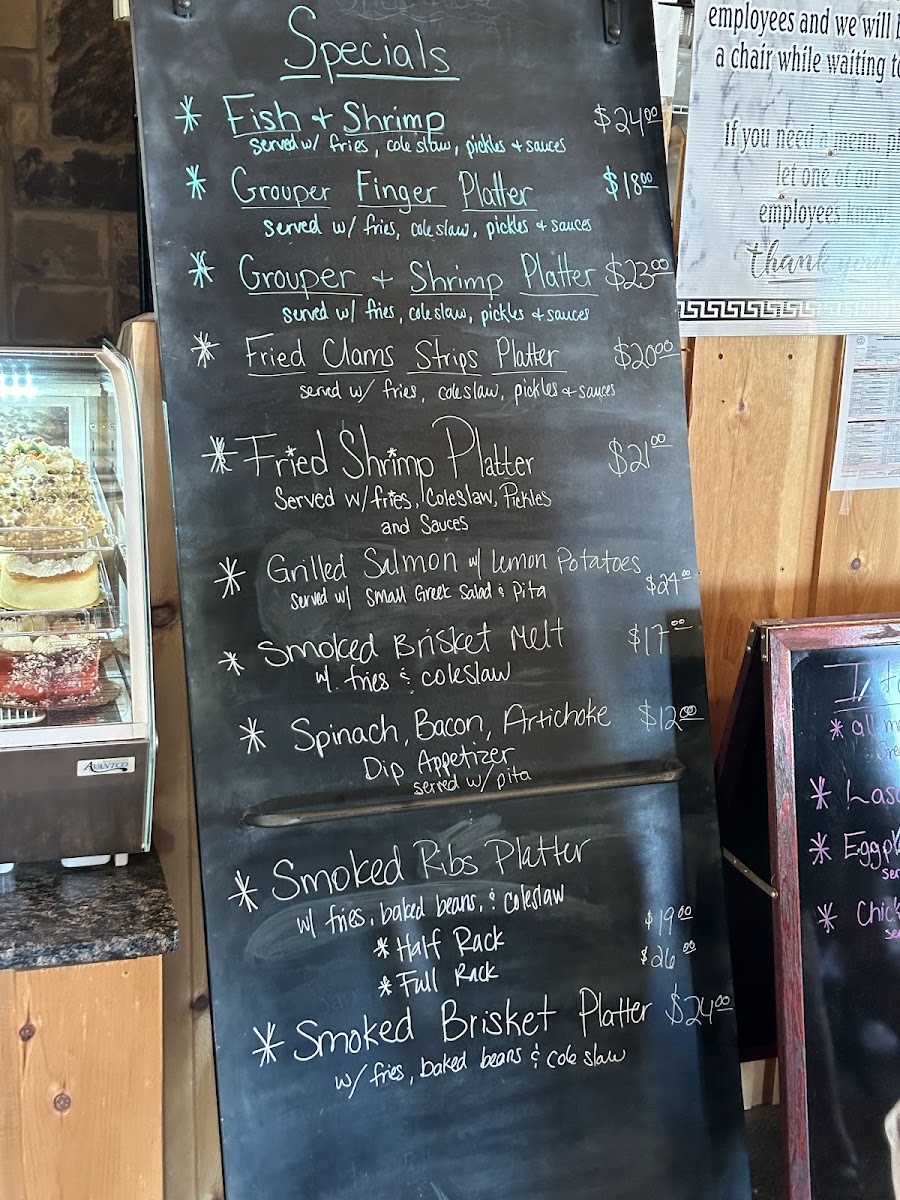 Specials
* Fish + Shrimp $24.00
served w/ fries, cole slaw, pickles + sauces
* Grouper Finger Platter $18.00
served w/ fries, cole slaw, pickles + sauces
* Grouper + Shrimp Platter $23.00
served w/ fries, coleslaw, pickles + sauces
* Fried Clams Strips Platter $20.00
served w/ fries, coleslaw, pickles + sauces
* Fried Shrimp Platter $21.00
Served w/ fries, Coleslaw, Pickles
and Sauces
* Grilled Salmon w/ Lemon Potatoes
served w/ Small Greek Salad & Pita $24.00
* Smoked Brisket Melt $17.00
w. fries & coleslaw
* Spinach, Bacon, Artichoke $12.00
Dip Appetizer
served w/ pita
* Smoked Ribs Platter
w/ fries, baked beans, & coleslaw
* Half Rack $19.00
* Full Rack $26.00
* Smoked Brisket Platter $24.00
w/ fries, baked beans & cole slaw
employees and we will
a chair while waiting
If you need a menu,
let one of our
employees know
thank you
AVANTCO
* all
* Lasa
* Eggpl
* Chic